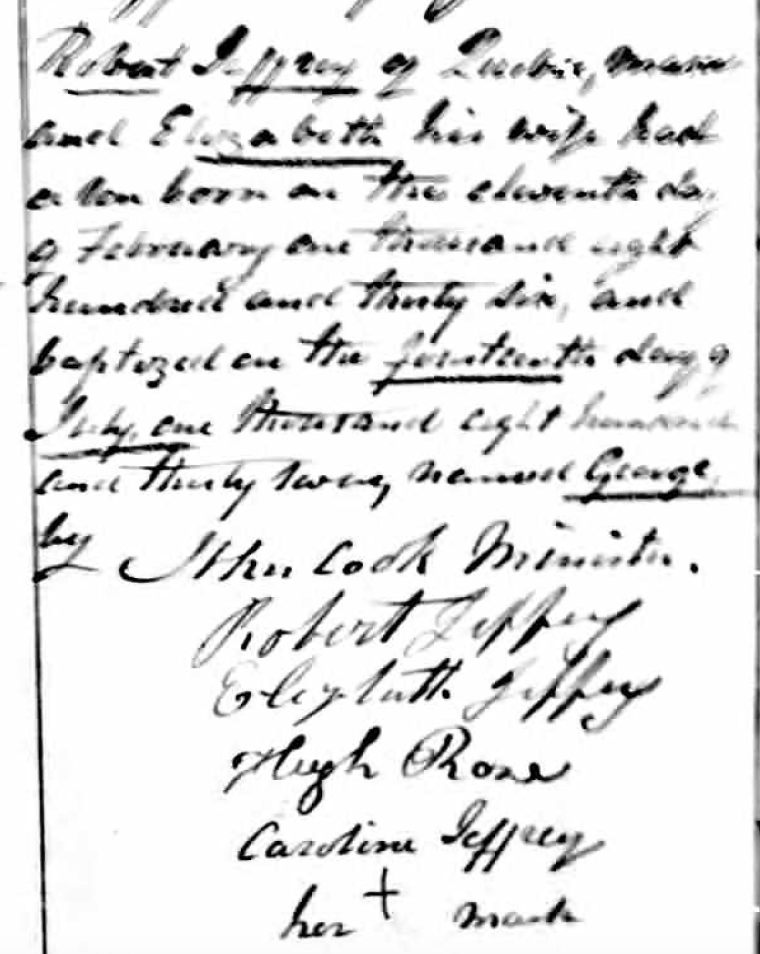 Robert Jeffrey of Quebec, mason
and Elizabeth his wife had
a son born on the eleventh day
of February one thousand eight
hundred and thirty six, and
baptized on the fourteenth day of
July, one thousand eight hundred
and thirty seven, named George
by John Cook Minister.
Robert Jeffrey
Elizabeth Jeffrey
Hugh Rose
Caroline Jeffrey
her + mark